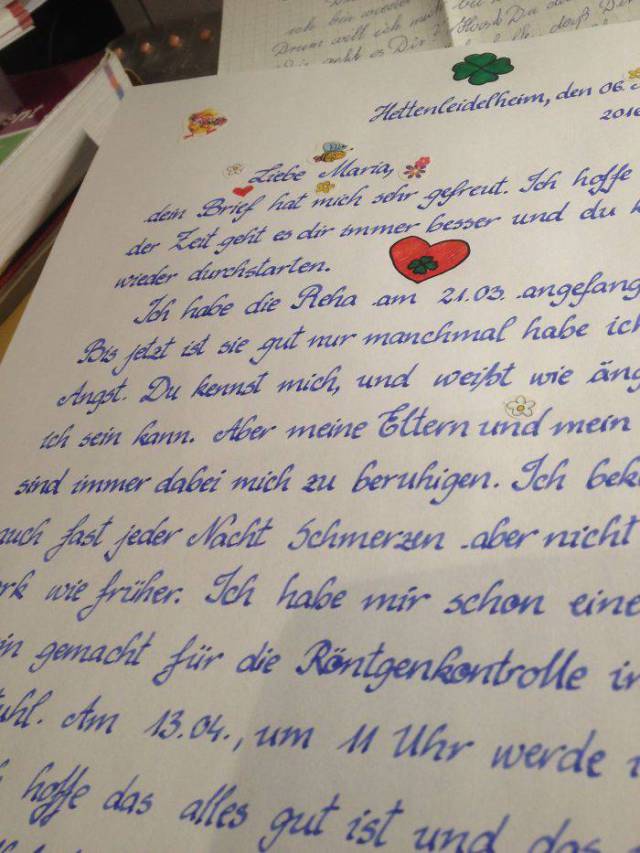 ich bin wieder
Drum will ich mich
geht es Dir
Hettenleidelheim, den 06.
2016
Liebe Maria,
dein Brief hat mich sehr gefreut. Ich hoffe
der Zeit geht es dir immer besser und du
wieder durchstarten.
Ich habe die Reha am 21.03. angefang
Bis jetzt ist sie gut nur manchmal habe ich
Angst. Du kennst mich, und weißt wie äng
ich sein kann. Aber meine Eltern und mein
sind immer dabei mich zu beruhigen. Ich bek
auch fast jeder Nacht Schmerzen aber nicht
rk wie früher. Ich habe mir schon eine
in gemacht für die Röntgenkontrolle in
uhl. Am 13.04., um 11 Uhr werde i
hoffe das alles gut ist und das